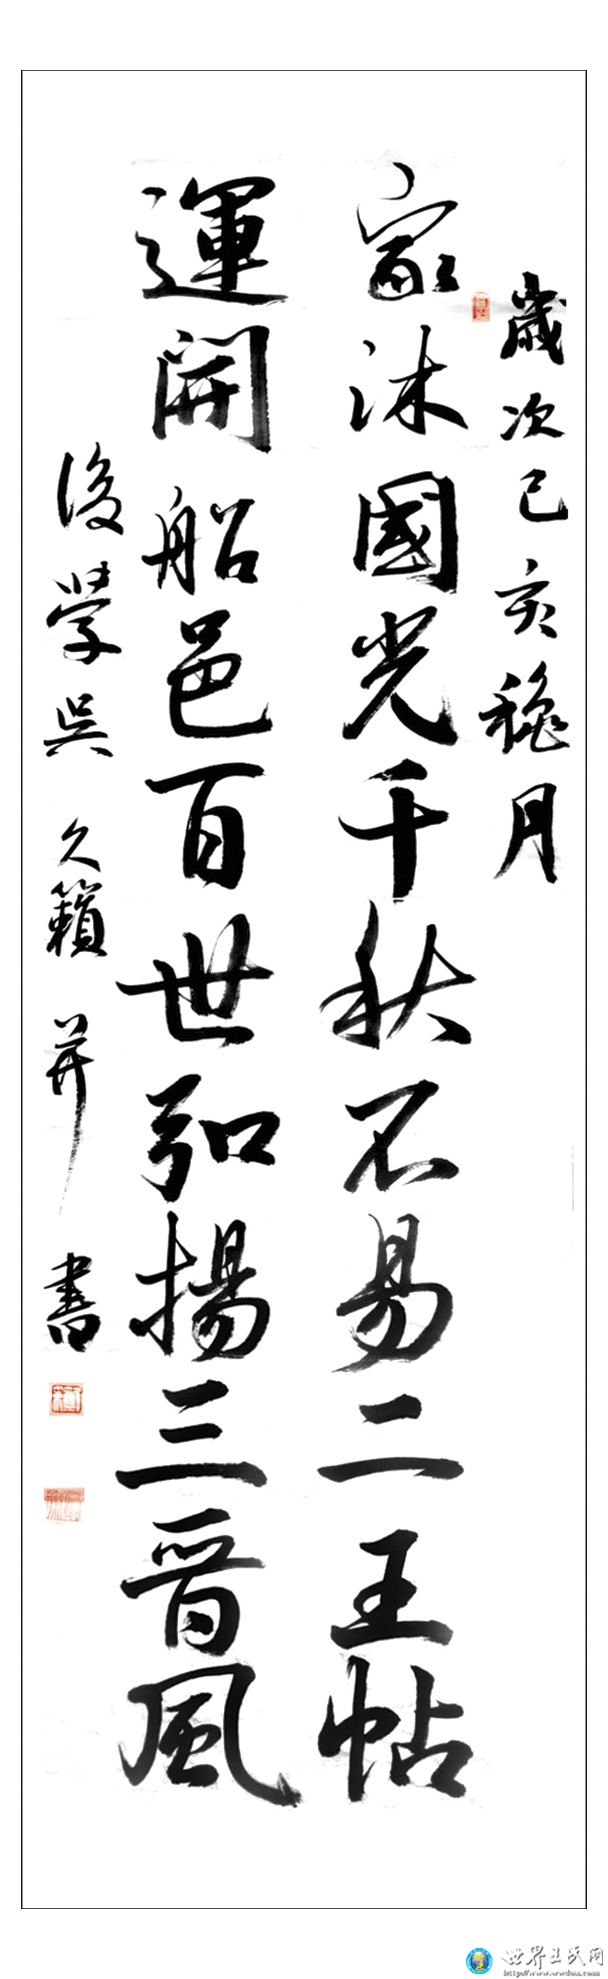 歲次己亥穐月
家沐國光千秋不易二王帖
運開船邑百世弘揚三晉風
後學吳久籟并書
世界王氏网
http://www.wwdoa.com